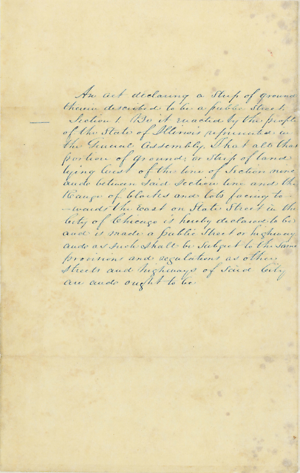 An act declaring a Strip of ground
therein described to be a public Street.
Section 1 Be it enacted by the people
of the State of Illinois represented in
the General Assembly, That all that
portion of ground, or strip of land
lying West of the line of Section nine
and between said Section line and the
Range of blocks and lots facing to
-wards the east on State Street in the
City of Chicago is hereby declared to be
and is made a public Street or highway
and as such shall be subject to the same
provisions and regulations as other
Streets and highways of said City
are and ought to be.